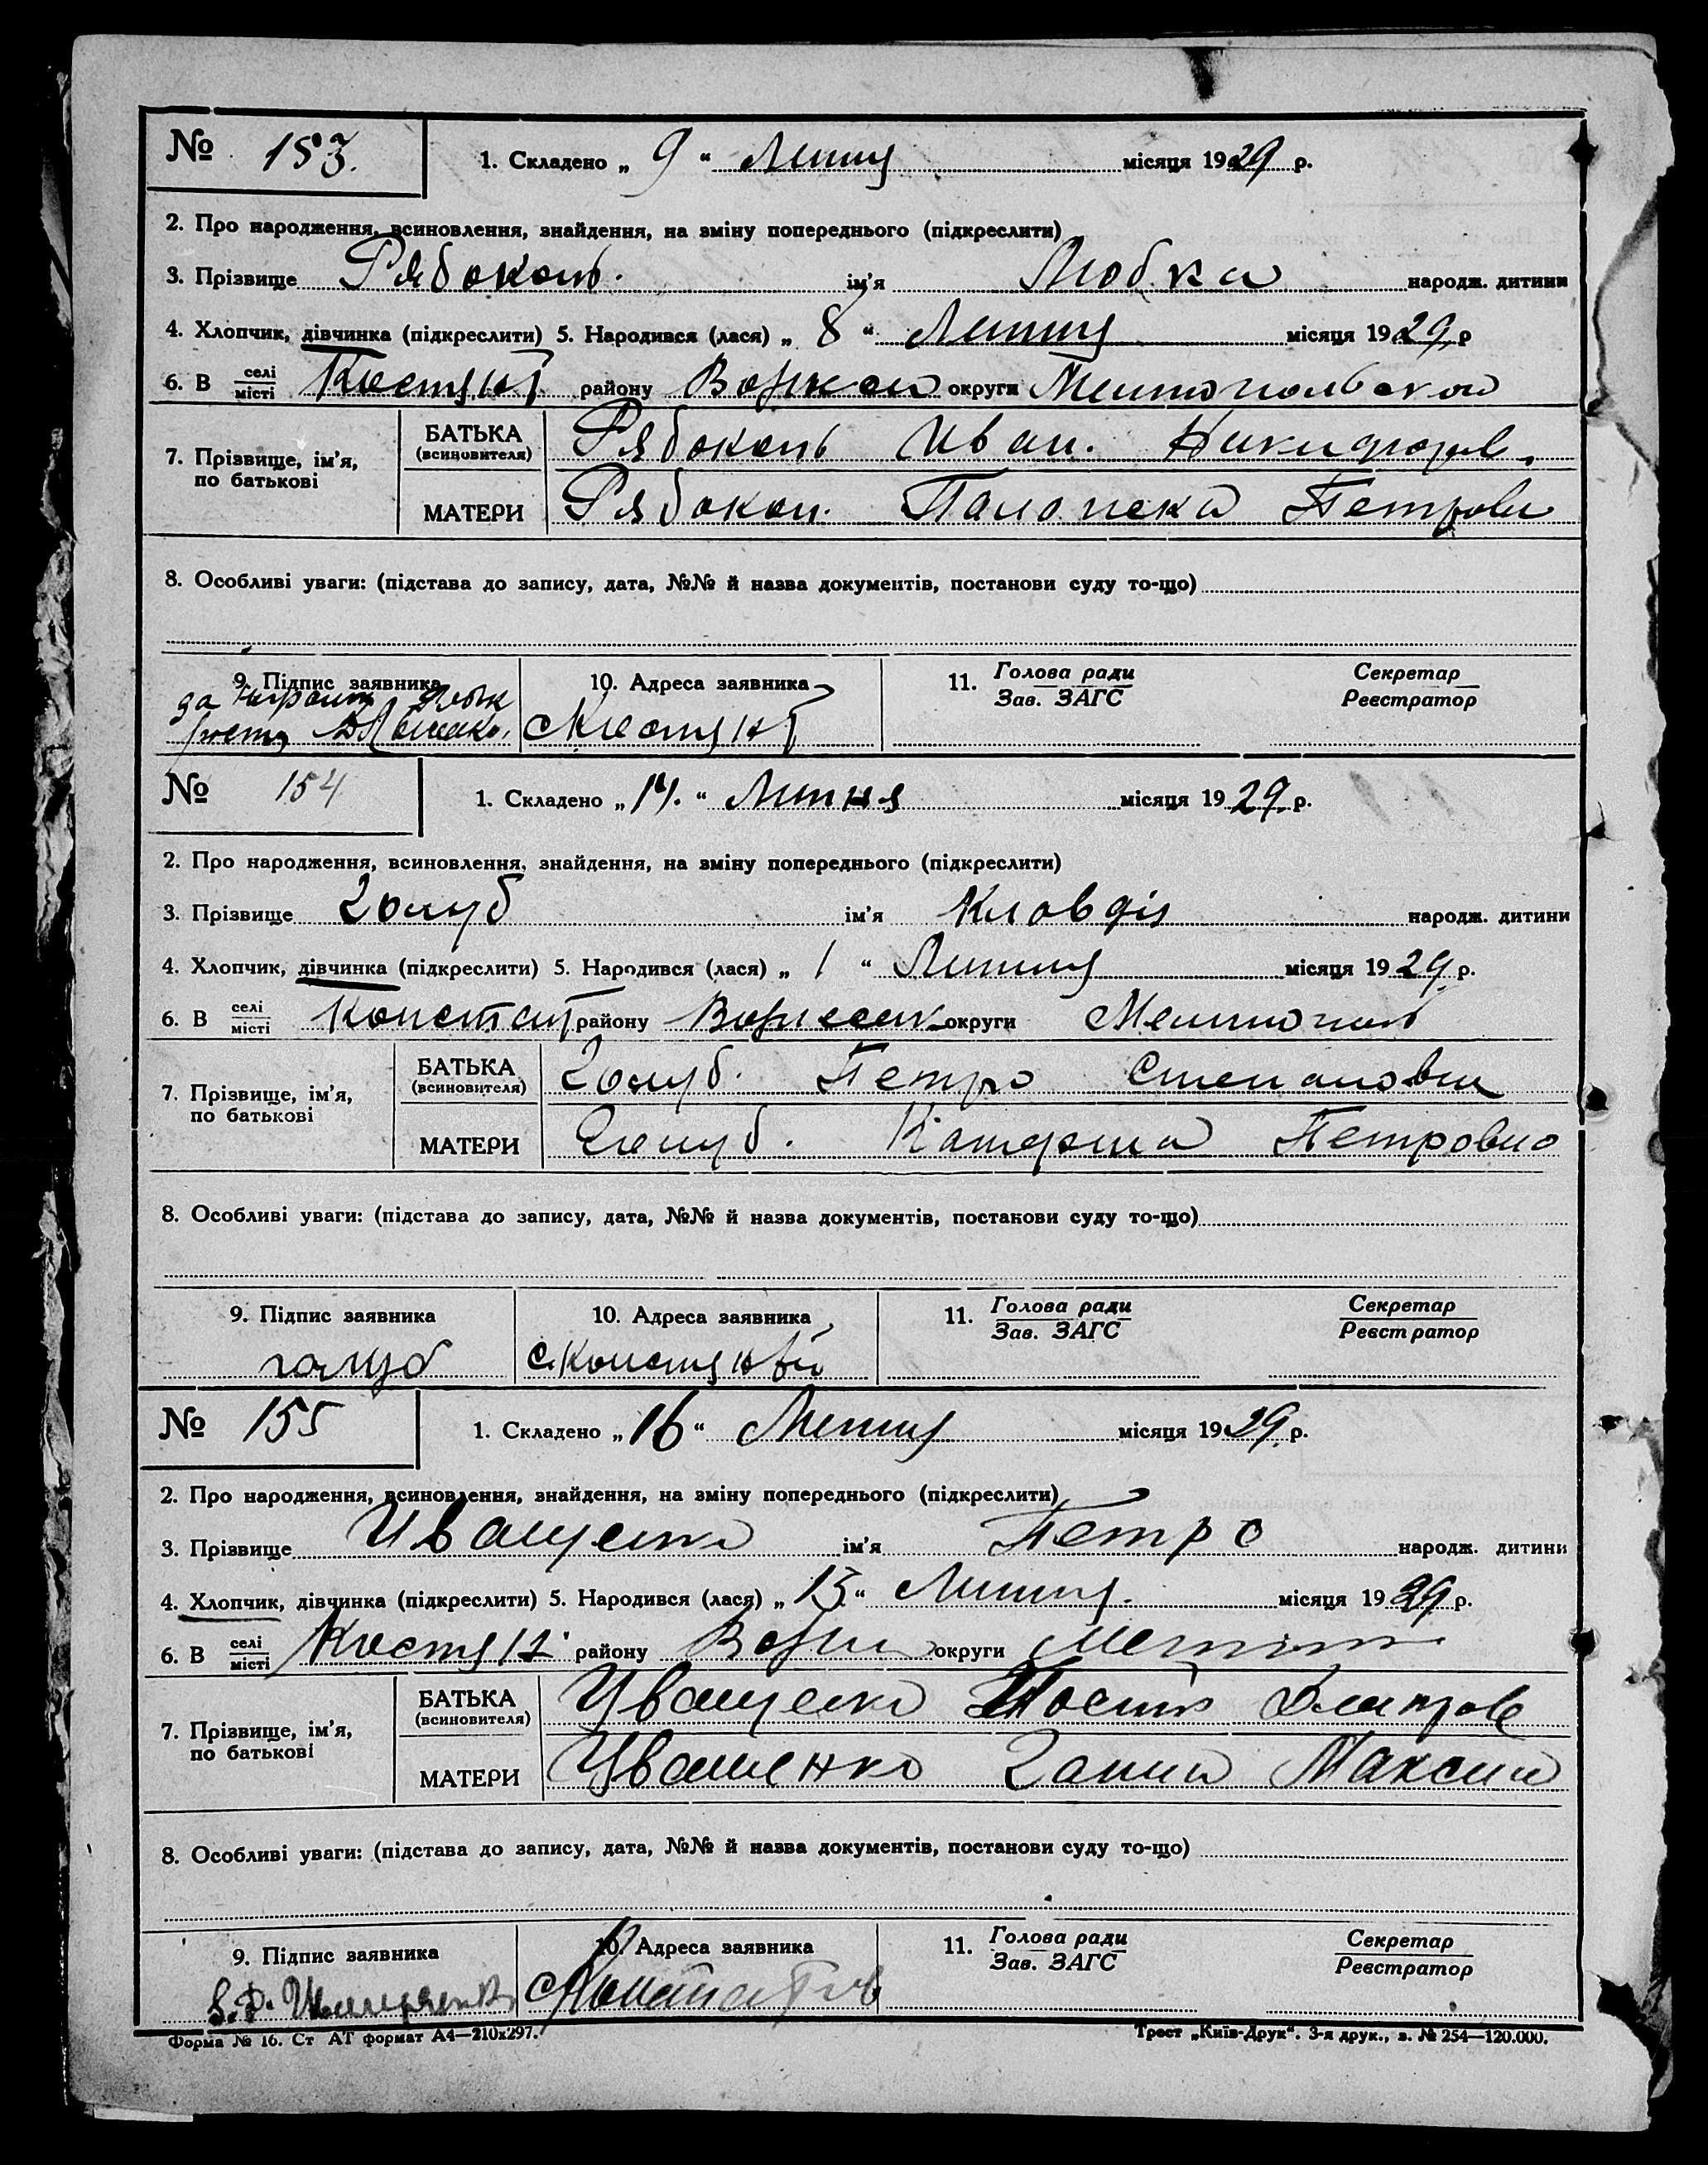 № 153. 1. Складено „ 9 “ Липня місяця 1929 р.
2. Про народження, всиновлення, знайдення, на зміну попереднього (підкреслити)
3. Прізвище Рябоконь. ім'я Любка народж. дитини
4. Хлопчик, дівчинка (підкреслити) 5. Народився (лася) „ 8 “ Липня місяця 1929 р
6. В селі місті району округи
7. Прізвище, ім'я, по батькові БАТЬКА (всиновителя) Рябоконь Иван. Никифоров.
МАТЕРИ Рябокон. Петровн
8. Особливі уваги: (підстава до запису, дата, №№ й назва документів, постанови суду то-що)
9. Підпис заявника 10. Адреса заявника 11. Голова ради Зав. ЗАГС Секретар Реєстратор
№ 154 1. Складено „ 14. “ Липня місяця 1929. р.
2. Про народження, всиновлення, знайдення, на зміну попереднього (підкреслити)
3. Прізвище Голуб ім'я Кловдія народж. дитини
4. Хлопчик, дівчинка (підкреслити) 5. Народився (лася) „ 1 “ Липня місяця 1929 р.
6. В селі місті Констант району округи Мелітополь
7. Прізвище, ім'я, по батькові БАТЬКА (всиновителя) Голуб. Петро Степанович
МАТЕРИ Голуб. Катерина Петровна
8. Особливі уваги: (підстава до запису, дата, №№ й назва документів, постанови суду то-що)
9. Підпис заявника 10. Адреса заявника 11. Голова ради Зав. ЗАГС Секретар Реєстратор
голуб
№ 155 1. Складено „ 16 “ Липня місяця 1929. р.
2. Про народження, всиновлення, знайдення, на зміну попереднього (підкреслити)
3. Прізвище Иващенко ім'я Петро народж. дитини
4. Хлопчик, дівчинка (підкреслити) 5. Народився (лася) „ 15 “ Липня. місяця 1929 р.
6. В селі місті району округи
7. Прізвище, ім'я, по батькові БАТЬКА (всиновителя) Иващенко Дмитров
МАТЕРИ Иващенко Ганна Максим
8. Особливі уваги: (підстава до запису, дата, №№ й назва документів, постанови суду то-що)
9. Підпис заявника 10. Адреса заявника 11. Голова ради Зав. ЗАГС Секретар Реєстратор
Форма № 16. Ст АТ формат А4—210х297. Трест „Київ-Друк“. 3-я друк., з. № 254—120.000.